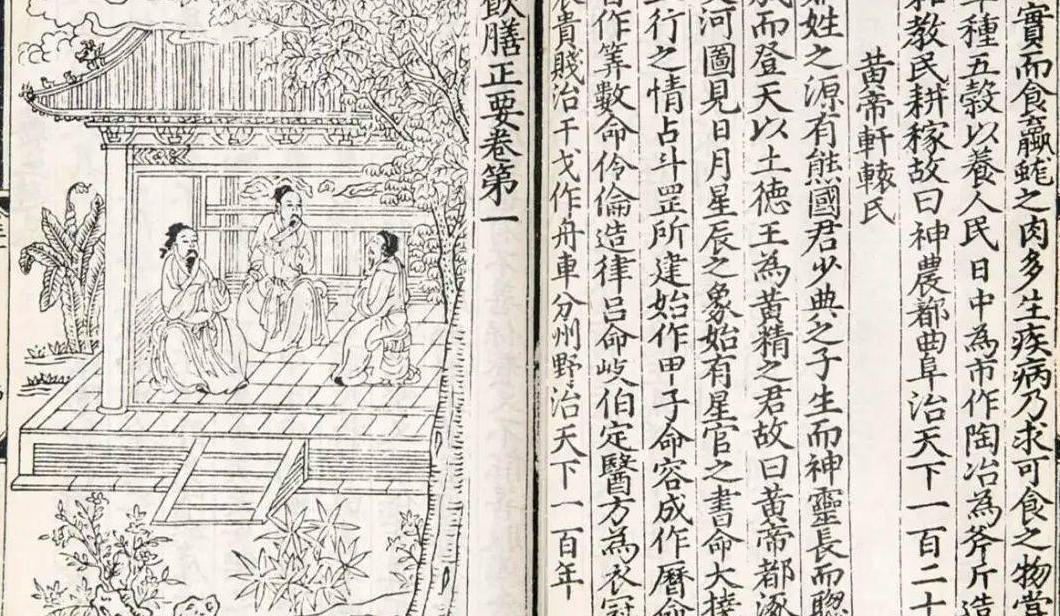 實而食蠃蛖之肉多生疾病乃求可食之物嘗
草種五穀以養人民日中為市作陶冶為斧斤造
耜教民耕稼故曰神農都曲阜治天下一百二十
黃帝軒轅氏
姓之源有熊國君少典之子生而神靈長而聰
成而登天以土德王為黃精之君故曰黃帝都涿
河圖見日月星辰之象始有星官之書命大撓
行之情占斗罡所建始作甲子命容成作曆命
首作筭數命伶倫造律呂命岐伯定醫方為衣冠
表貴賤治干戈作舟車分州野治天下一百年
飲膳正要卷第一